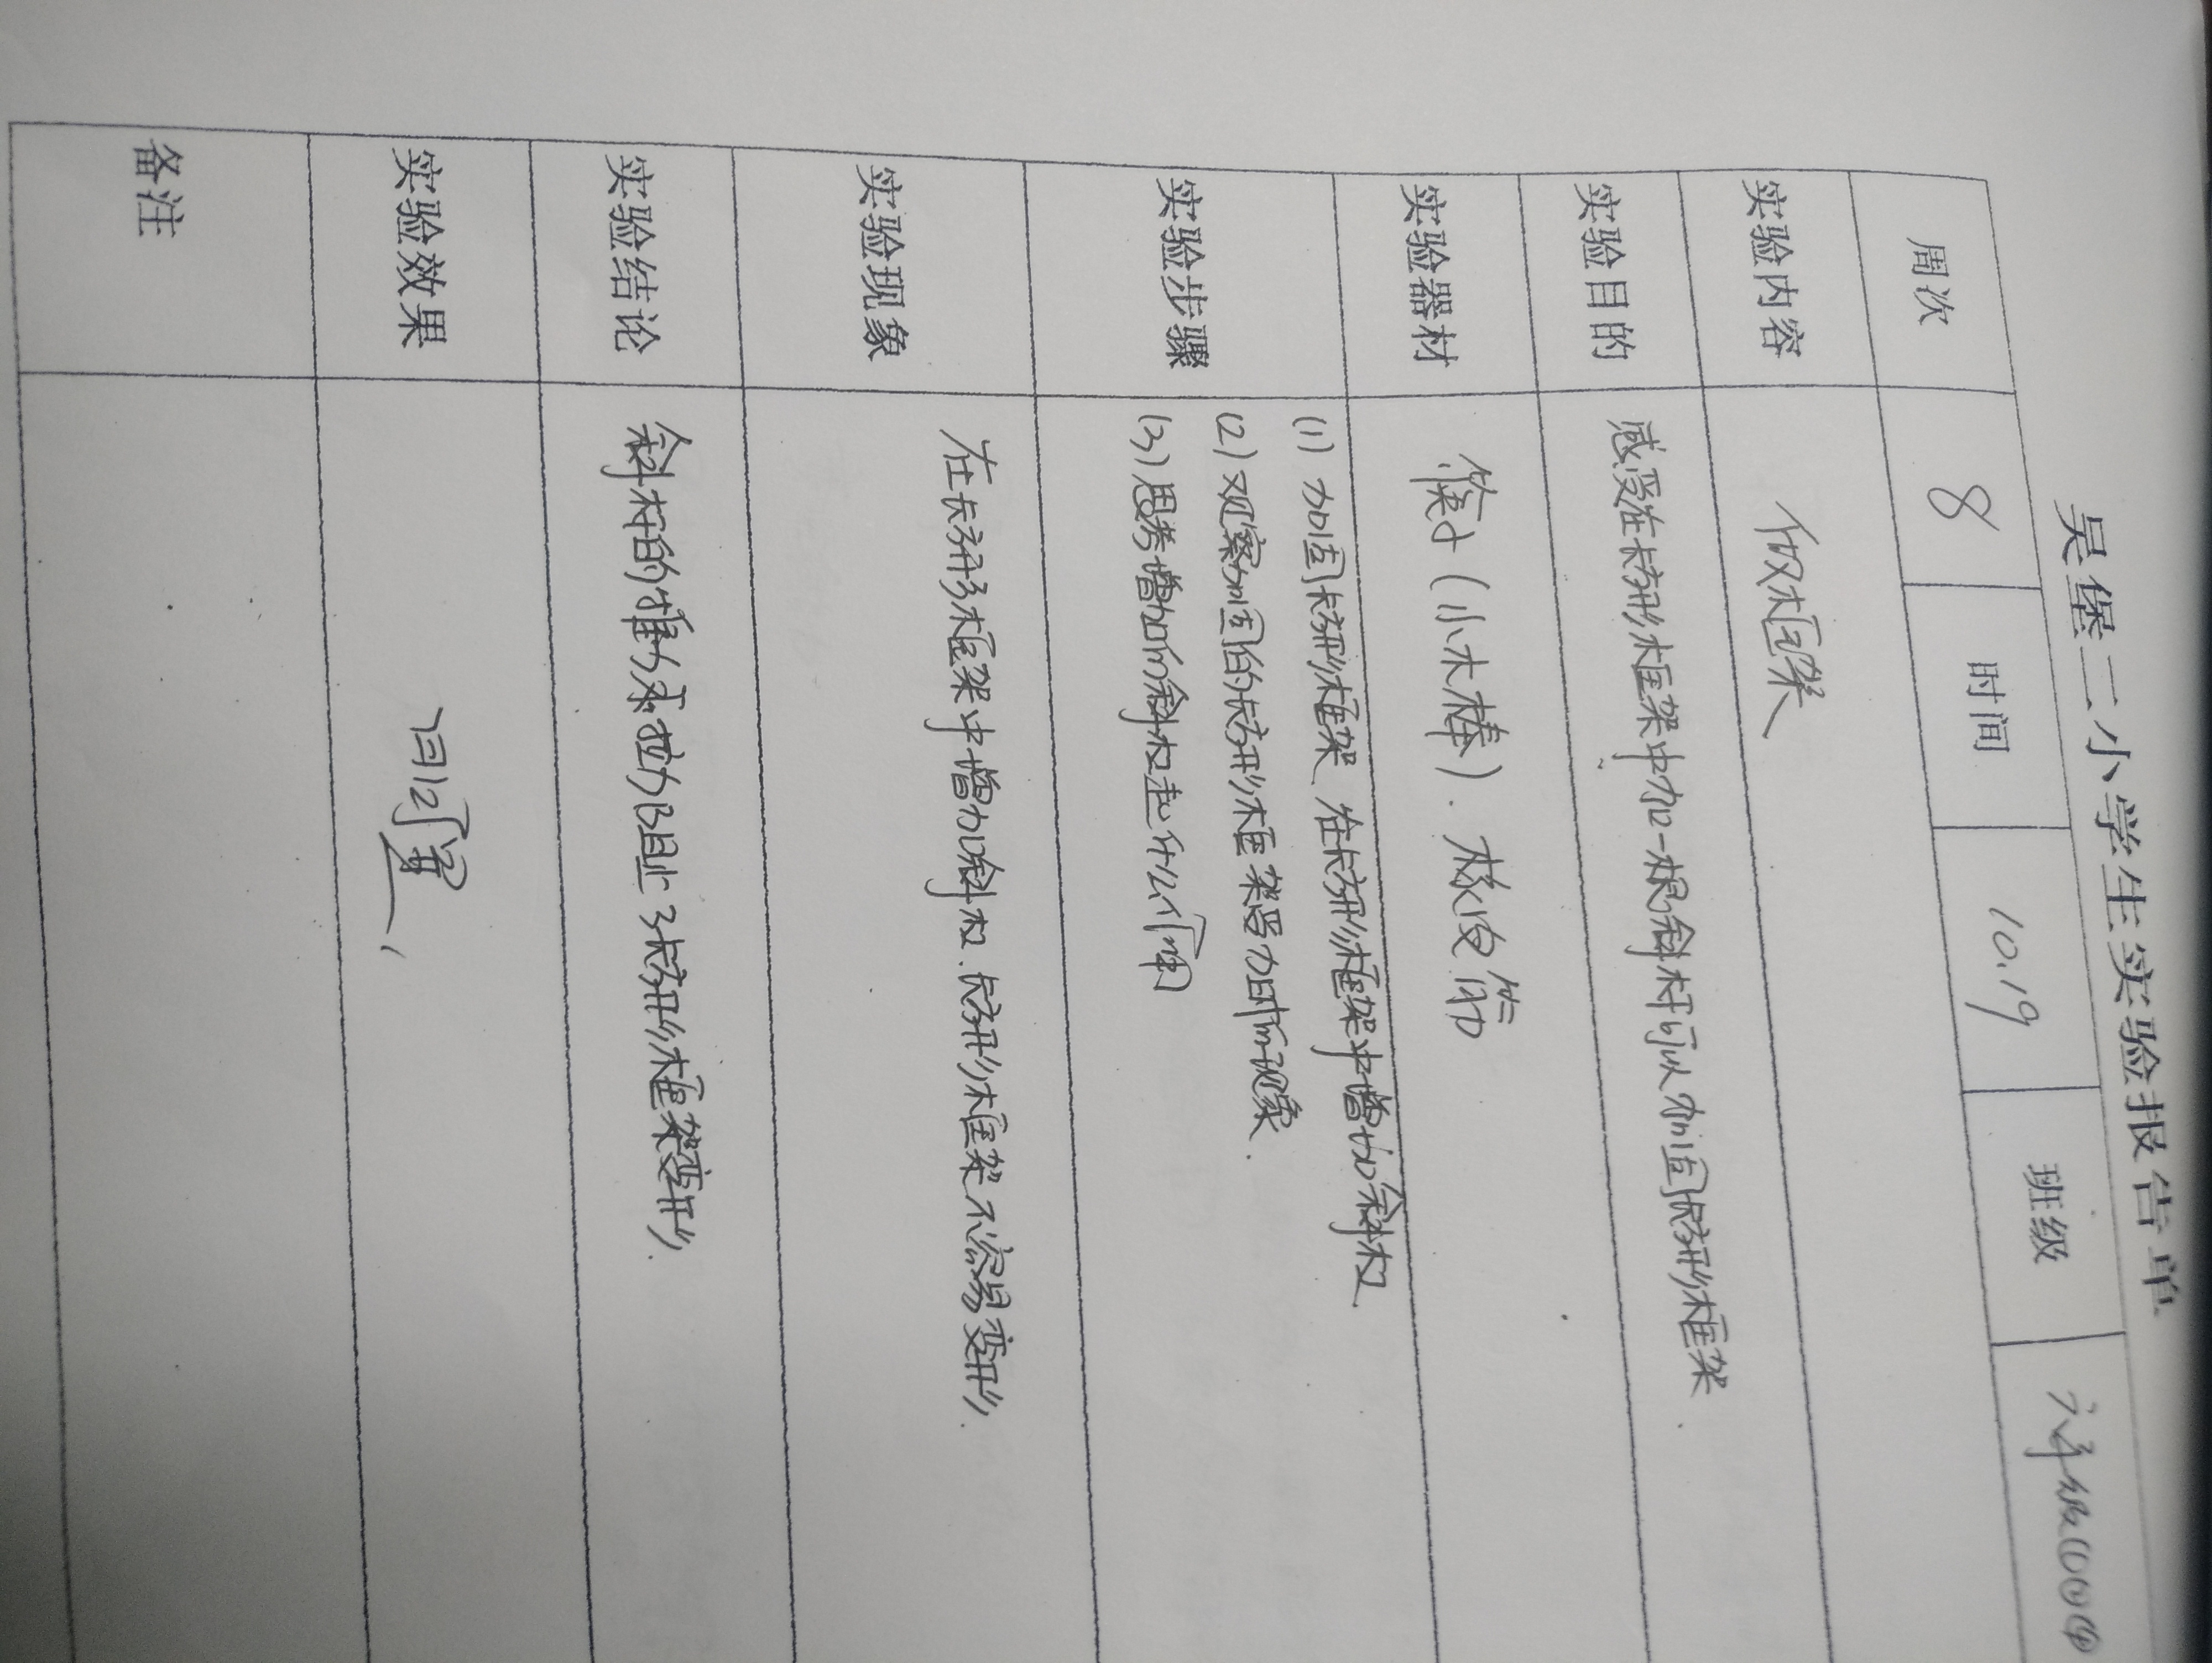 吴堡二小学生实验报告单
周次 8 时间 10.19 班级 六年级
实验内容 做框架
实验目的 感受在长方形框架中加一根斜杆可以加固长方形框架.
实验器材 筷子(小木棒)、橡皮筋
实验步骤 (1) 加固长方形框架、在长方形框架中增加斜杠.
(2) 观察加固的长方形框架受力时的现象.
(3) 思考增加的斜杠起什么作用
实验现象 在长方形框架中增加斜杠、长方形框架不容易变形.
实验结论 斜杆的推力或拉力阻止了长方形框架变形.
实验效果 明显
备注